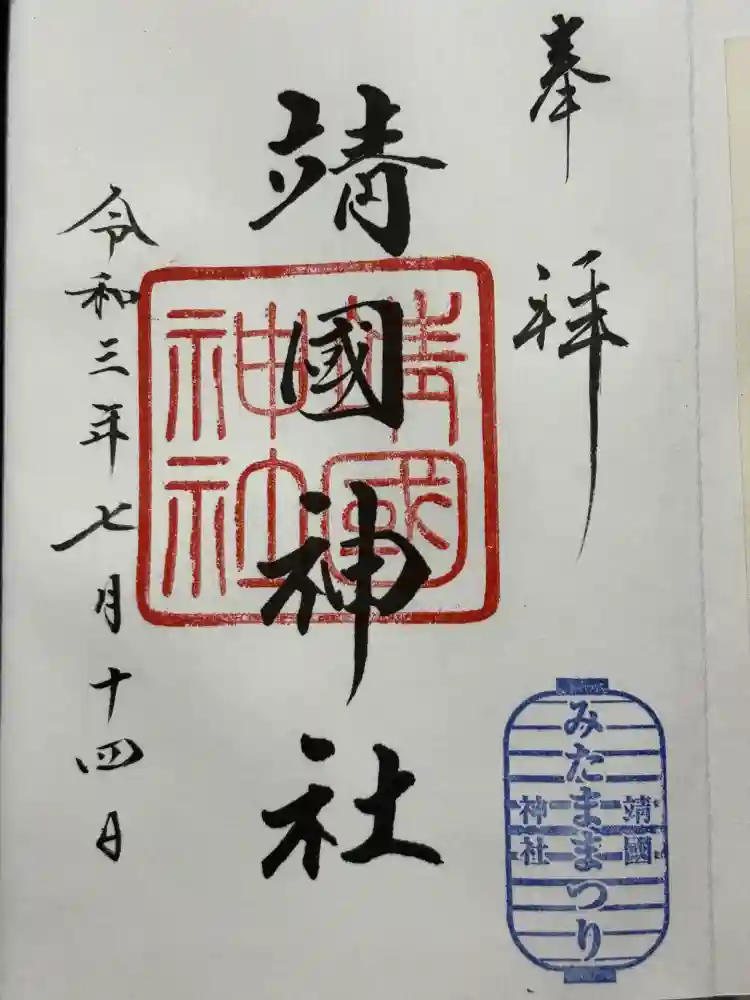 奉拝
靖國神社
靖國
神社
令和三年七月十四日
靖國
みたままつり
神社